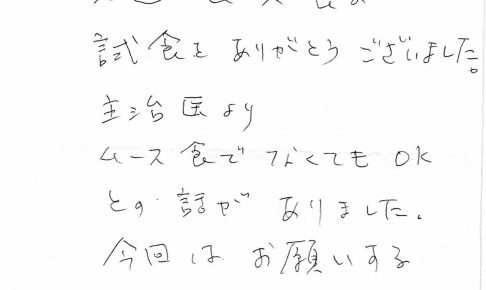 試食を ありがとう ございました。
主治医より
ムース食で なくても OK
との 話が ありました。
今回は お願いする